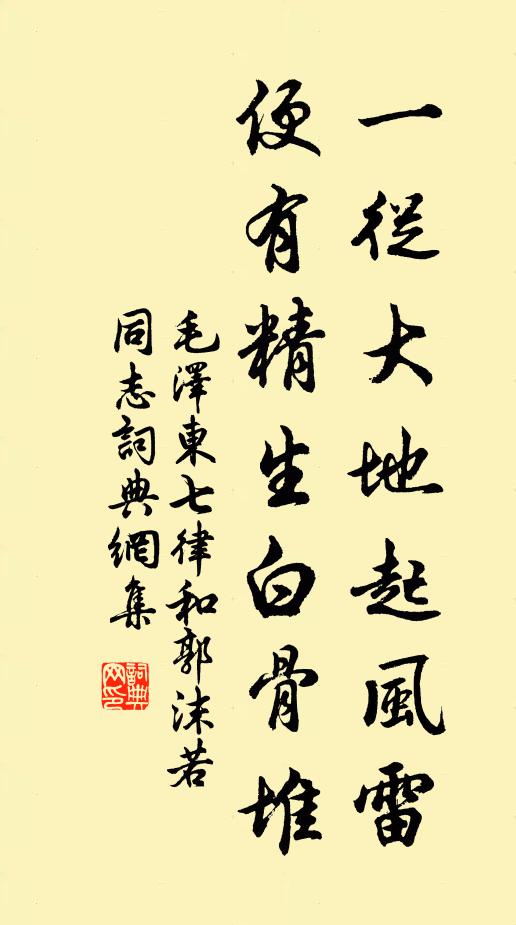 一從大地起風雷
便有精生白骨堆
毛澤東七律和郭沫若
同志詞典網集
詞典
网印